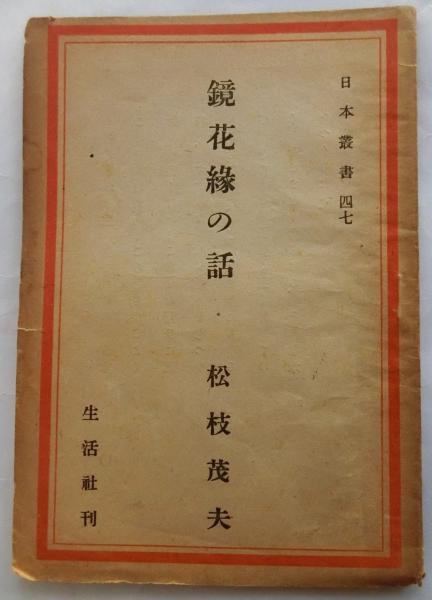 日本叢書 四七
鏡花緣の話
松枝茂夫
生活社刊